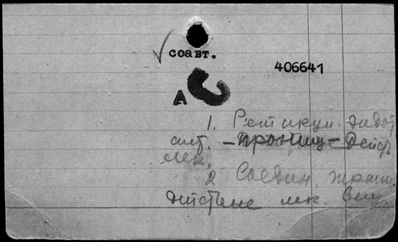 соавт.
406641
А
1. Ретикул. эндот
сист. – прониц – Действ.
лек.
2 Соедин ткани
действие лек. вещ